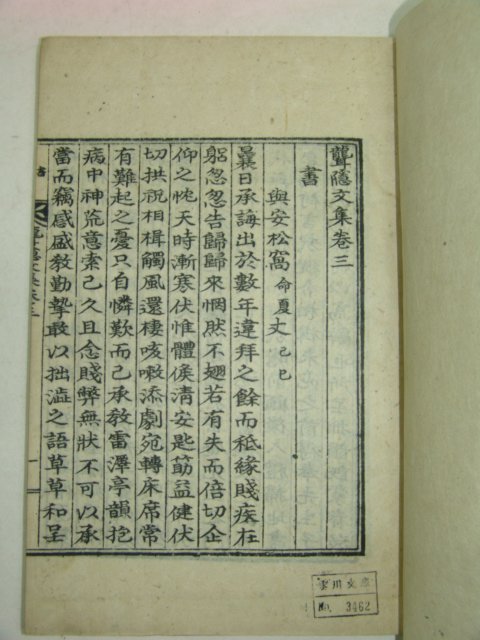 聾隱文集卷三
書
與安松窩命夏丈己巳
曩日承誨出於數年違拜之餘而秪緣賤疾在
躬忽忽告歸歸來惘然不翅若有失而倍切企
仰之忱天時漸寒伏惟體候淸安匙筯益健伏
切拱祝相楫觸風還棲咳嗽添劇宛轉床席常
有難起之憂只自憐歎而已承敎雷澤亭韻抱
病中神荒意索己久且念賤弊無狀不可以承
當而竊感盛敎勤摯敢以拙澁之語草草和呈
書
No. 3462